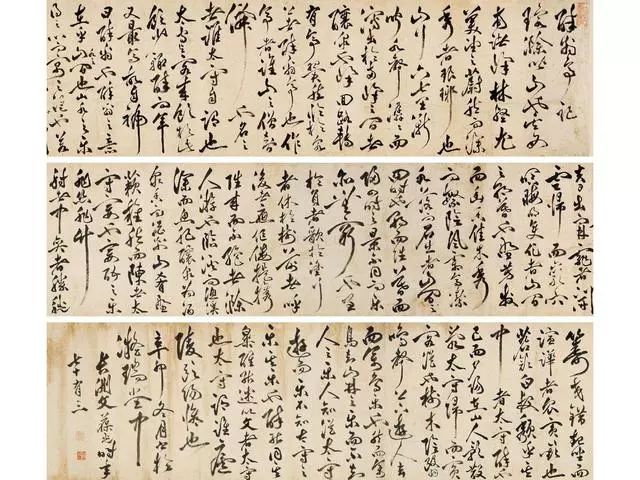 醉翁亭記
環滁皆山也其西
南諸峰林壑尤
美望之蔚然而深
秀者瑯琊也
山行六七里漸
聞水聲潺潺而
瀉出於兩峰之間者
釀泉也峰回路轉
有亭翼然臨於泉
上者醉翁亭也作
亭者誰山之僧智
僊也名之
者誰太守自謂也
太守與客來飲於此
飲少輒醉而年
又最高故自號
曰醉翁也醉翁之意
在乎山水之間也山水之樂
得之心而寓之酒也若
夫日出而林霏開
雲歸而巖穴
暝晦明變化者山間
之朝暮也野芳發
而幽香佳木秀
而繁陰風霜高潔
水落而石出者山間之
四時也朝而往暮而
歸四時之景不同而樂
亦無窮也至
於負者歌於塗行
者休於樹前者呼
後者應傴僂提攜
往來而不絕者滁
人遊也臨溪而漁溪
深而魚肥釀泉為酒
泉香而酒洌山肴野
蔌雜然而前陳者太
守宴也宴酣之樂
非絲非竹
射者中奕者勝觥
籌交錯起坐而
諠譁者衆賓懽也
蒼顏白髮頹然乎其
中者太守醉也
已而夕陽在山人影散
亂太守歸而賓
客從也樹林陰翳
鳴聲上下遊人去
而禽鳥樂也然而禽
鳥知山林之樂而不知
人之樂人知從太守
遊而樂而不知太守之
樂其樂也醉能同其
樂醒能述以文者太守
也太守謂誰廬
陵歐陽脩也
辛卯冬月書於
凝瑞堂中
長洲文葆光時年
七十有二